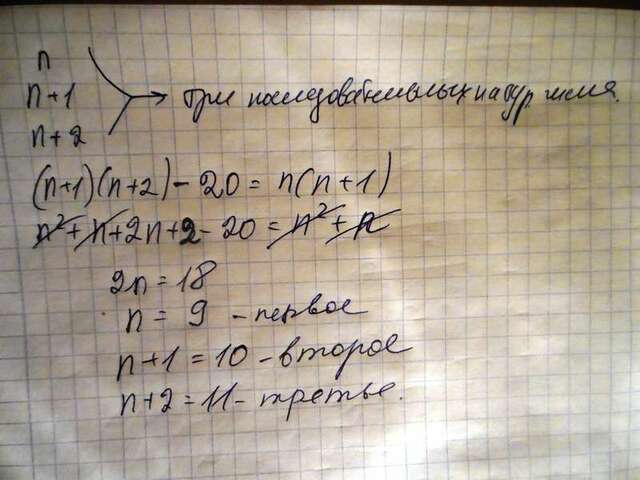 n
n+1
n+2
три последовательных натур числа.
(n+1)(n+2) - 20 = n(n+1)
n²+n+2n+2-20 = n²+n
2n = 18
n = 9 - первое
n+1 = 10 - второе
n+2 = 11 - третье.